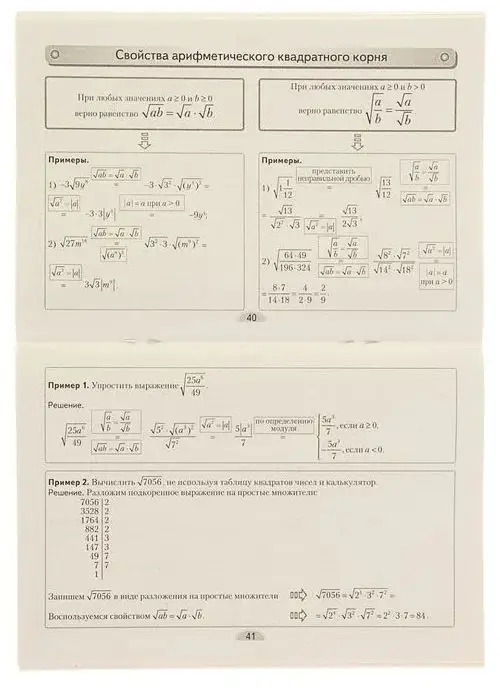 Свойства арифметического квадратного корня
При любых значениях a ≥ 0 и b ≥ 0
верно равенство √ab = √a · √b
При любых значениях a ≥ 0 и b > 0
верно равенство √(a/b) = √a/√b
Примеры.
√ab = √a · √b
1) −3√9y⁸ = −3·√3² · √(y⁴)² =
√a² = |a| |a| = a при a > 0
= −3·3|y⁴| = −9y⁴;
√ab = √a · √b
2) √27m¹⁸ = √3² · 3 · √(m⁹)² =
√(aⁿ)²
√a² = |a|
= 3√3|m⁹|.
Примеры.
представить неправильной дробью
√(a/b) = √a/√b
1) √(1 1/12) = √(13/12) =
√ab = √a · √b
= √13/√(2² · 3) = √13/(2√3);
√a² = |a|
√(a/b) = √a/√b
2) √((64·49)/(196·324)) = (√8² · √7²)/(√14² · √18²) =
√ab = √a · √b
√a² = |a|
|a| = a при a > 0
= (8·7)/(14·18) = 4/(2·9) = 2/9.
40
Пример 1. Упростить выражение √(25a⁶/49).
Решение.
√(a/b) = √a/√b
√(25a⁶/49) = (√5² · √(a³)²)/√7² = 5|a³|/7 =
√ab = √a · √b
√a² = |a|
по определению модуля
5a³/7, если a ≥ 0,
−5a³/7, если a < 0.
Пример 2. Вычислить √7056, не используя таблицу квадратов чисел и калькулятор.
Решение. Разложим подкоренное выражение на простые множители:
7056 | 2
3528 | 2
1764 | 2
882 | 2
441 | 3
147 | 3
49 | 7
7 | 7
1 |
Запишем √7056 в виде разложения на простые множители √7056 = √2⁴ · 3² · 7² =
Воспользуемся свойством √ab = √a · √b. = √2⁴ · √3² · √7² = 2² · 3 · 7 = 84.
41